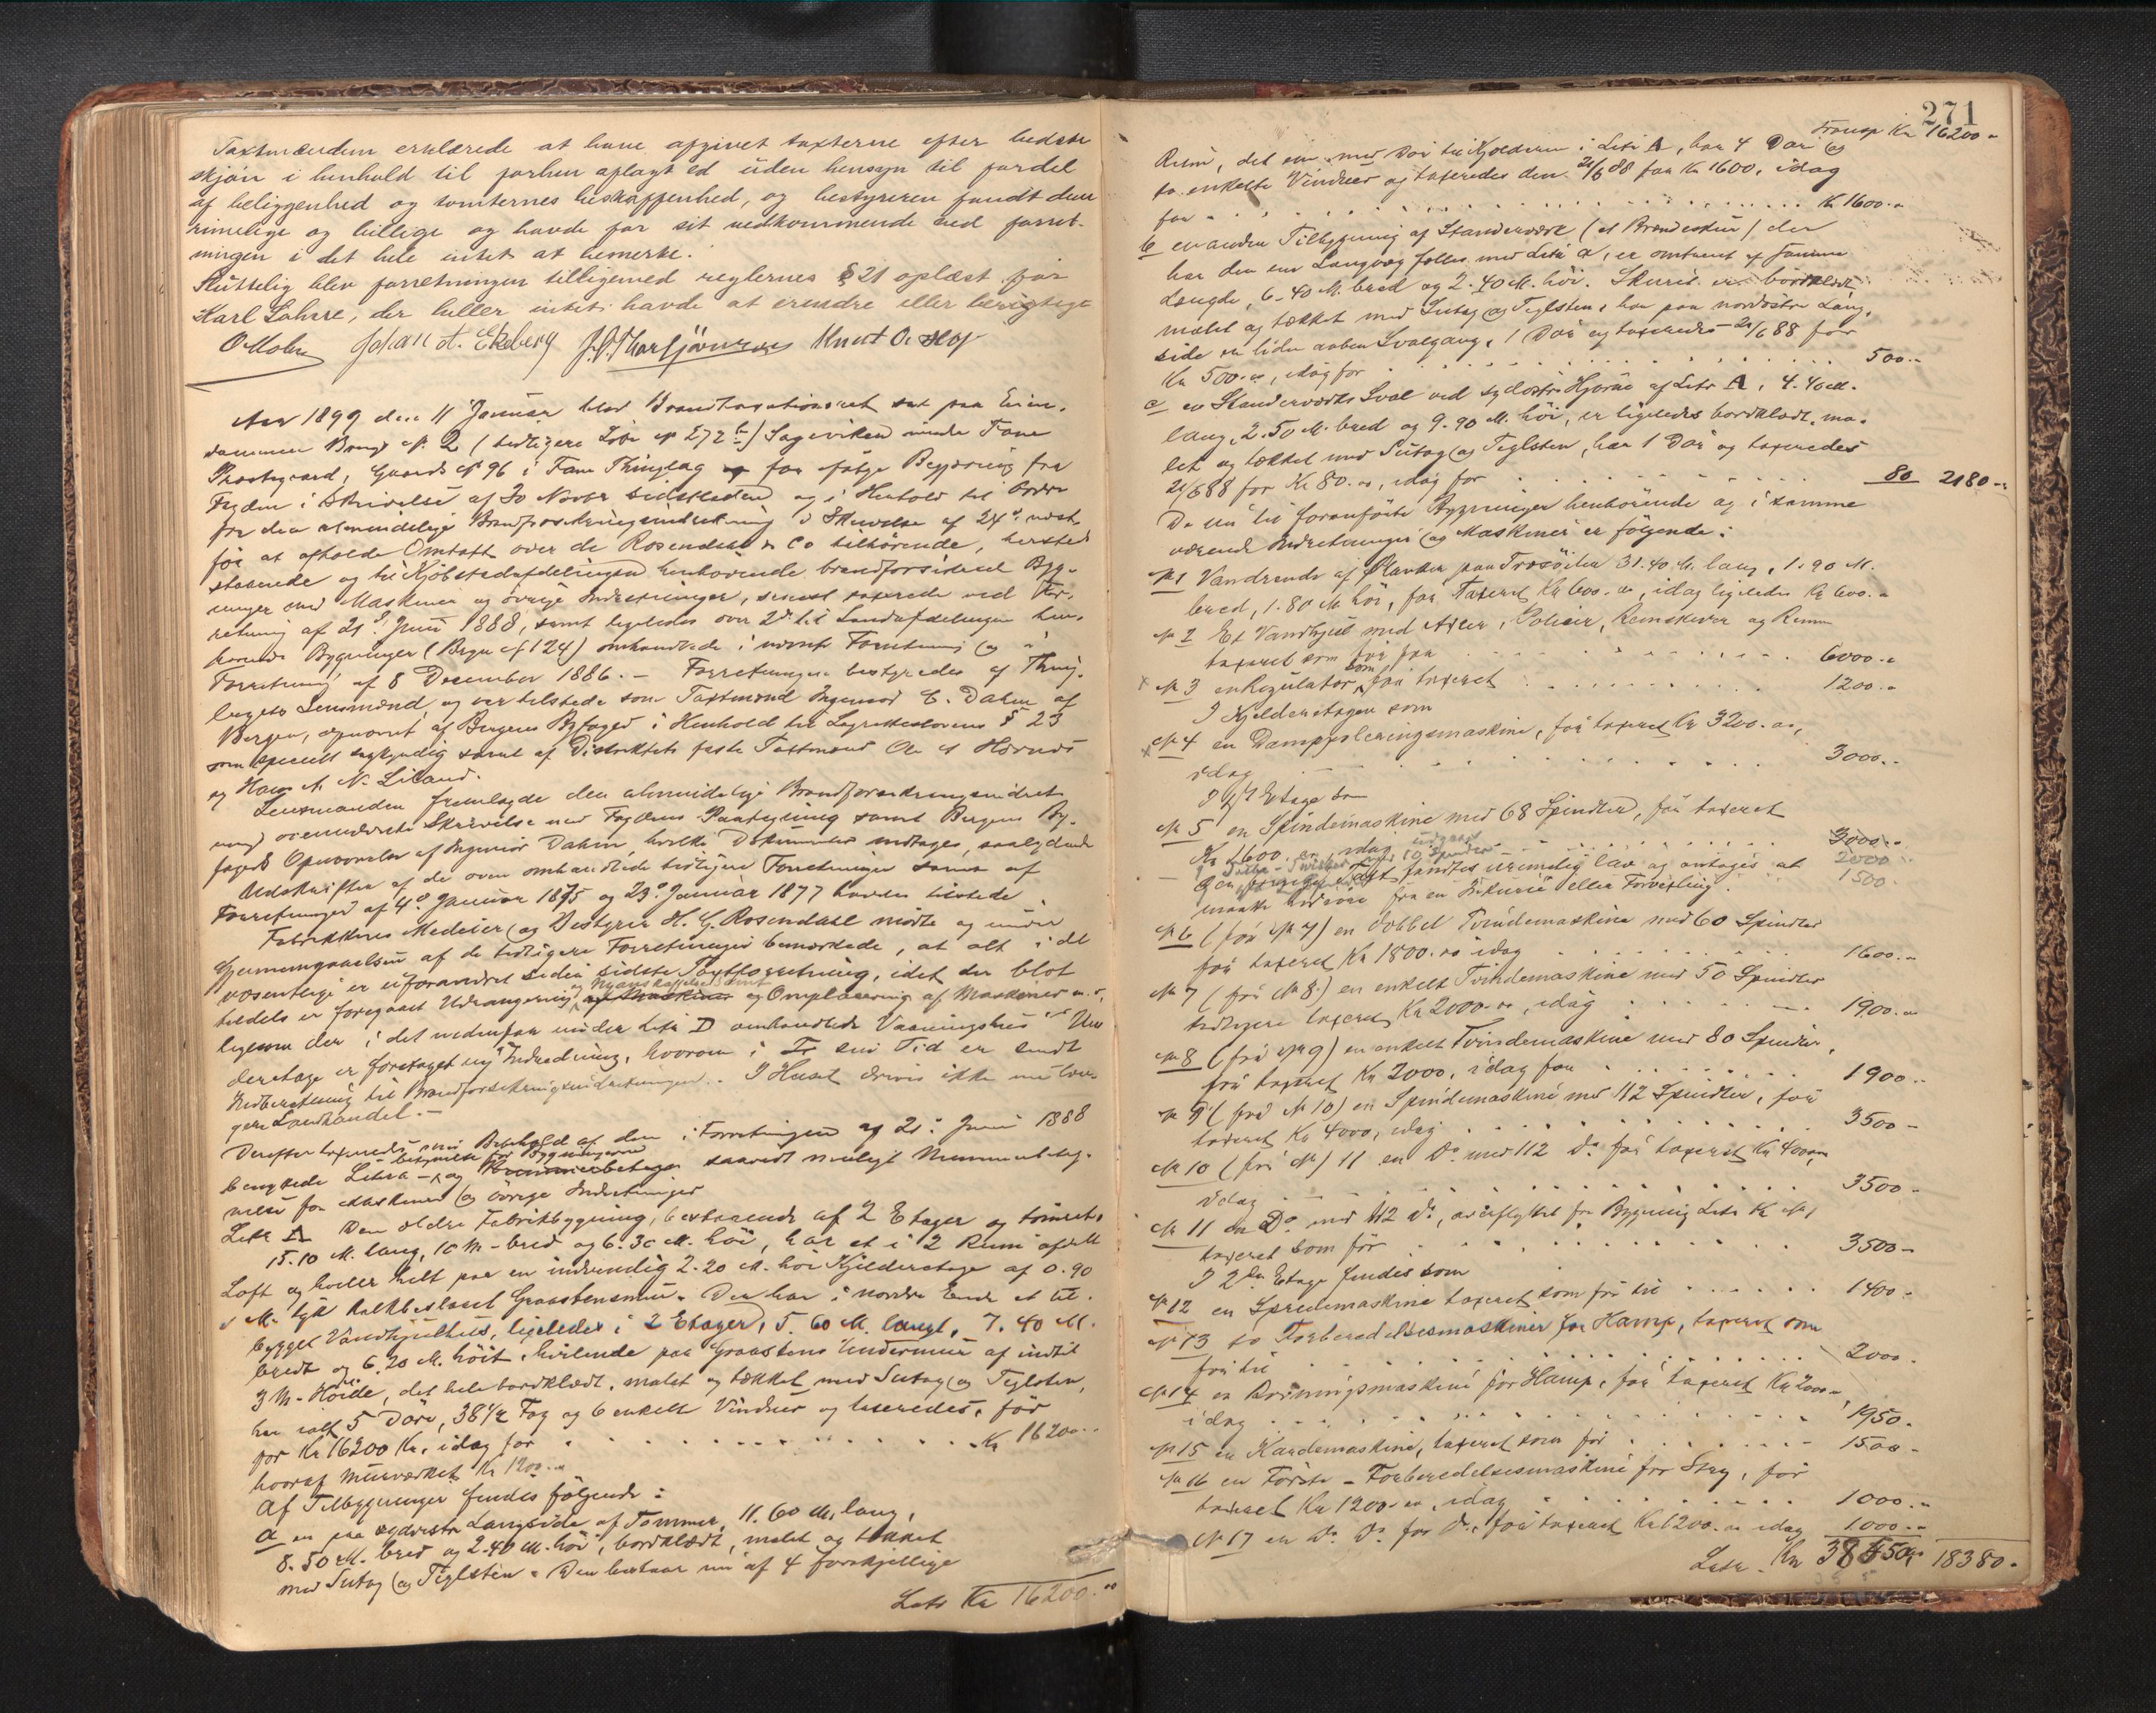 Taxtmændene erklærede at have afgivet taxterne efter bedste
skjøn i henhold til forhen aflagt ed uden hensyn til fordel
af beliggenhed og tomternes beskaffenhed, og bestyreren fandt dem
rimelige og billige og havde for sit vedkommende ved forret-
ningen i det hele intet at bemerke.
Sluttelig blev forretningen tilligemed reglernes § 21 oplæst for
Karl Lahsse, der heller intet havde at erindre eller berigtige
O. Molm Johan A. Ekeberg Knut O. Hop
Aar 1899 den 11 Januar blev Brandtaxationsret sat paa Eien-
dommen Brugs № 2 (tidligere Løbe № 272 b) Sageviken under Fane
Prestegaard, Gaards № 96 i Fane Thinglag for ifølge Begjæring fra
Fogden i Skrivelse af 30 Novbr sidstleden og i Henhold til Ordre
fra den almindelige Brandforsikringsindretning i Skrivelse af 24de næst-
før at afholde Omtaxt over de Rosendahl & Co tilhørende, hersteds
staaende og til Kjøbstadafdelingen henhørende brandforsikrede Byg-
ninger med Maskiner og øvrige Indretninger, senest taxerede ved For-
retning af 21de Juni 1888, samt ligeledes over 2de til Landafdelingen hen-
hørende Bygninger (Brgn № 124) omhandlede i nævnte Forretning og i
Forretning af 8 December 1886. – Forretningen bestyredes af Thing-
lagets Lensmand, og var tilstede som Taxtmænd Ingeniør E. Dahm af
Bergen, opnævnt af Bergens Byfoged i Henhold til Lagrettelovens § 23
som specielt sagkyndig samt af Distriktets faste Taxtmænd Ole A Hörnes
og Hans A. N. Liland.
Lensmanden fremlagde den almindelige Brandforsikringsindret-
nings ovennævnte Skrivelse med Fogdens Paategning samt Bergens By-
fogeds Opnævnelse af Ingeniør Dahm, hvilke Dokumenter medtages, saalydende
Udskrifter af de oven omhandlede tidligere Forretninger samt af
Forretninger af 4de Januar 1875 og 23de Januar 1877 havdes tilstede.
Fabrikkens Medeier og Bestyrer H. G. Rosendahl mødte og under
Gjennemgaaelsen af de tidligere Forretninger bemærkede, at alt i det
væsentlige er uforandret siden sidste Taxtforretning, idet der blot
og Nyanskaffelse samt
tildels er foregaaet Udrangering af Maskiner og Omplacering af Maskiner m. v.
ligesom der i det nedenfor under Litr D omhandlede Vaaningshus's Un-
deretage er foretaget ny Indredning, hvorom i sin Tid er sendt
Indberetning til Brandforsikringsindretningen. I Huset drives ikke mere læn-
gere Landhandel. –
Derefter taxeredes med Bibehold af den i Forretningen af 21de Juni 1888
betegnelse for Bygningerne
benyttede Litera – og Nummerbetegn saavidt muligt Nummerbeteg-
nelse for Maskiner og øvrige Indretninger
Litr A Den ældre Fabrikbygning, bestaaende af 2 Etager og tømret,
15.10 M. lang, 10 M. bred og 6.30 M. høi, har et i 2 Rum afdelt
Loft og hviler helt paa en indvendig 2.20 M. høi Kjelderetage af 0.90
M. tyk kalkbeslaaet Graastensmur. Den har i nordre Ende et til-
bygget Vandhjulhus, ligeledes i 2 Etager, 5.60 M. langt, 7.40 M.
bredt og 6.20 M. høit, hvilende paa Graastens Undermur af indtil
3 M. Høide, det hele bordklædt, malet og tækket med Sutag og Teglsten,
har ialt 5 Døre, 38 1/2 Fag og 6 enkelte Vinduer og taxeredes, før
for Kr 16200 Kr. idag for . . . . . Kr 16200..
hvoraf Murværket Kr 1200..
Af Tilbygninger findes følgende:
a en paa sydvestre Langside af Tømmer, 11.60 M. lang,
8.50 M. bred og 2.40 M. høi, bordklædt, malet og tækket
med Sutag og Teglsten. Den bestaar nu af 4 forskjellige
Latr Kr 16200.00
271
Transp Kr 16200..
Rum, det ene med Dør til Kjelderen i Litr A, har 4 Døre og
to enkelte Vinduer og taxeredes den 21/6 88 for Kr 1600, idag
for . . . . . Kr 1600..
b en anden Tilbygning af Standerværk (et Brændeskur) der
har den ene Langvæg fælles med Litr a, er omtrent af samme
Længde, 6.40 M. bred og 2.40 M. høi. Skuret er bordklædt,
malet og tækket med Sutag og Teglsten, har paa nordøstre Lang-
side en liden aaben Svalgang, 1 Dør og taxeredes 21/6 88 for
Kr 500.00, idag for . . . . . 500..
c en Standerværks Sval ved sydøstre Hjørne af Litr A, 4.40 M.
lang, 2.50 M. bred og 9.90 M. høi, er ligeledes bordklædt, ma-
let og tækket med Sutag og Teglsten, har 1 Dør og taxeredes
21/6 88 for Kr 80.00, idag for . . . . . 80 2180..
De nu til foranførte Bygninger henhørende og i samme
værende Indretninger og Maskiner er følgende:
№ 1 Vandrende af Planker paa Træsøiler 31.40 M. lang, 1.90 M.
bred, 1.80 M. høi, før Taxeret Kr 600.00, idag ligeledes Kr 600..
№ 2 Et Vandhjul med Axler, Polier, Remskiver og Remme
taxeret som før for . . . . . 6000..
№ 3 en Regulator, som før taxeret . . . . . 1200..
I Kjelderetagen som
№ 4 en Damppoleringsmaskine, før taxeret Kr 3200.00,
idag . . . . . 3000..
I 1ste Etage som
№ 5 en Spindemaskine med 68 Spindler, før taxeret
Kr 1600.00, idag udgaaet . . . . . 3000..
2000
Den forrige Taxt fandtes urimelig lav og antages at 1500.
maatte hidrøre fra en Inkurie eller Forvexling.
№ 6 (før № 7) en dobbel Tvindemaskine med 60 Spindler
før taxeret Kr 1800.00 idag . . . . . 1600..
№ 7 (før № 8) en enkelt Tvindemaskine med 50 Spindler
tidligere taxeret Kr 2000.00, idag . . . . . 1900..
№ 8 (før № 9) en enkelt Tvindemaskine med 80 Spindler,
før taxeret Kr 2000, idag for . . . . . 1900..
№ 9 (før № 10) en Spindemaskine med 112 Spindler, før
taxeret Kr 4000, idag . . . . . 3500 –
№ 10 (før №) 11 en Do med 112 Do før taxeret Kr 4000,
idag . . . . . 3500 –
№ 11 en Do med 112 Do, overflyttet fra Bygning Litr K № 1
taxeret som før . . . . . 3500 –
I 2den Etage findes som
№ 12 en Spredemaskine taxeret som før til . . . . . 1400 –
№ 13 to Forberedelsesmaskiner for Hamp, taxeret som
før til . . . . . 2000 –
№ 14 en Rivningsmaskine for Hamp, før taxeret Kr 2000..
idag . . . . . 1950.
№ 15 en Kardemaskine, taxeret som før . . . . . 1500 –
№ 16 en Første-Forberedelsesmaskine for Stry, før
taxeret Kr 1200.00, idag . . . . . 1000..
№ 17 en Do Do for Do, før taxeret Kr 1200.00 idag 1000..
Latr. Kr 38550.. 18380.